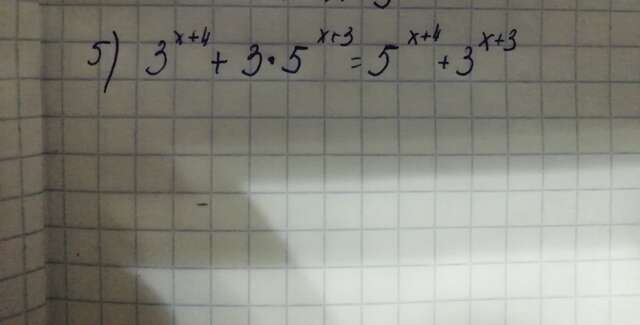 5) 3^{x+4} + 3 \cdot 5^{x+3} = 5^{x+4} + 3^{x+3}